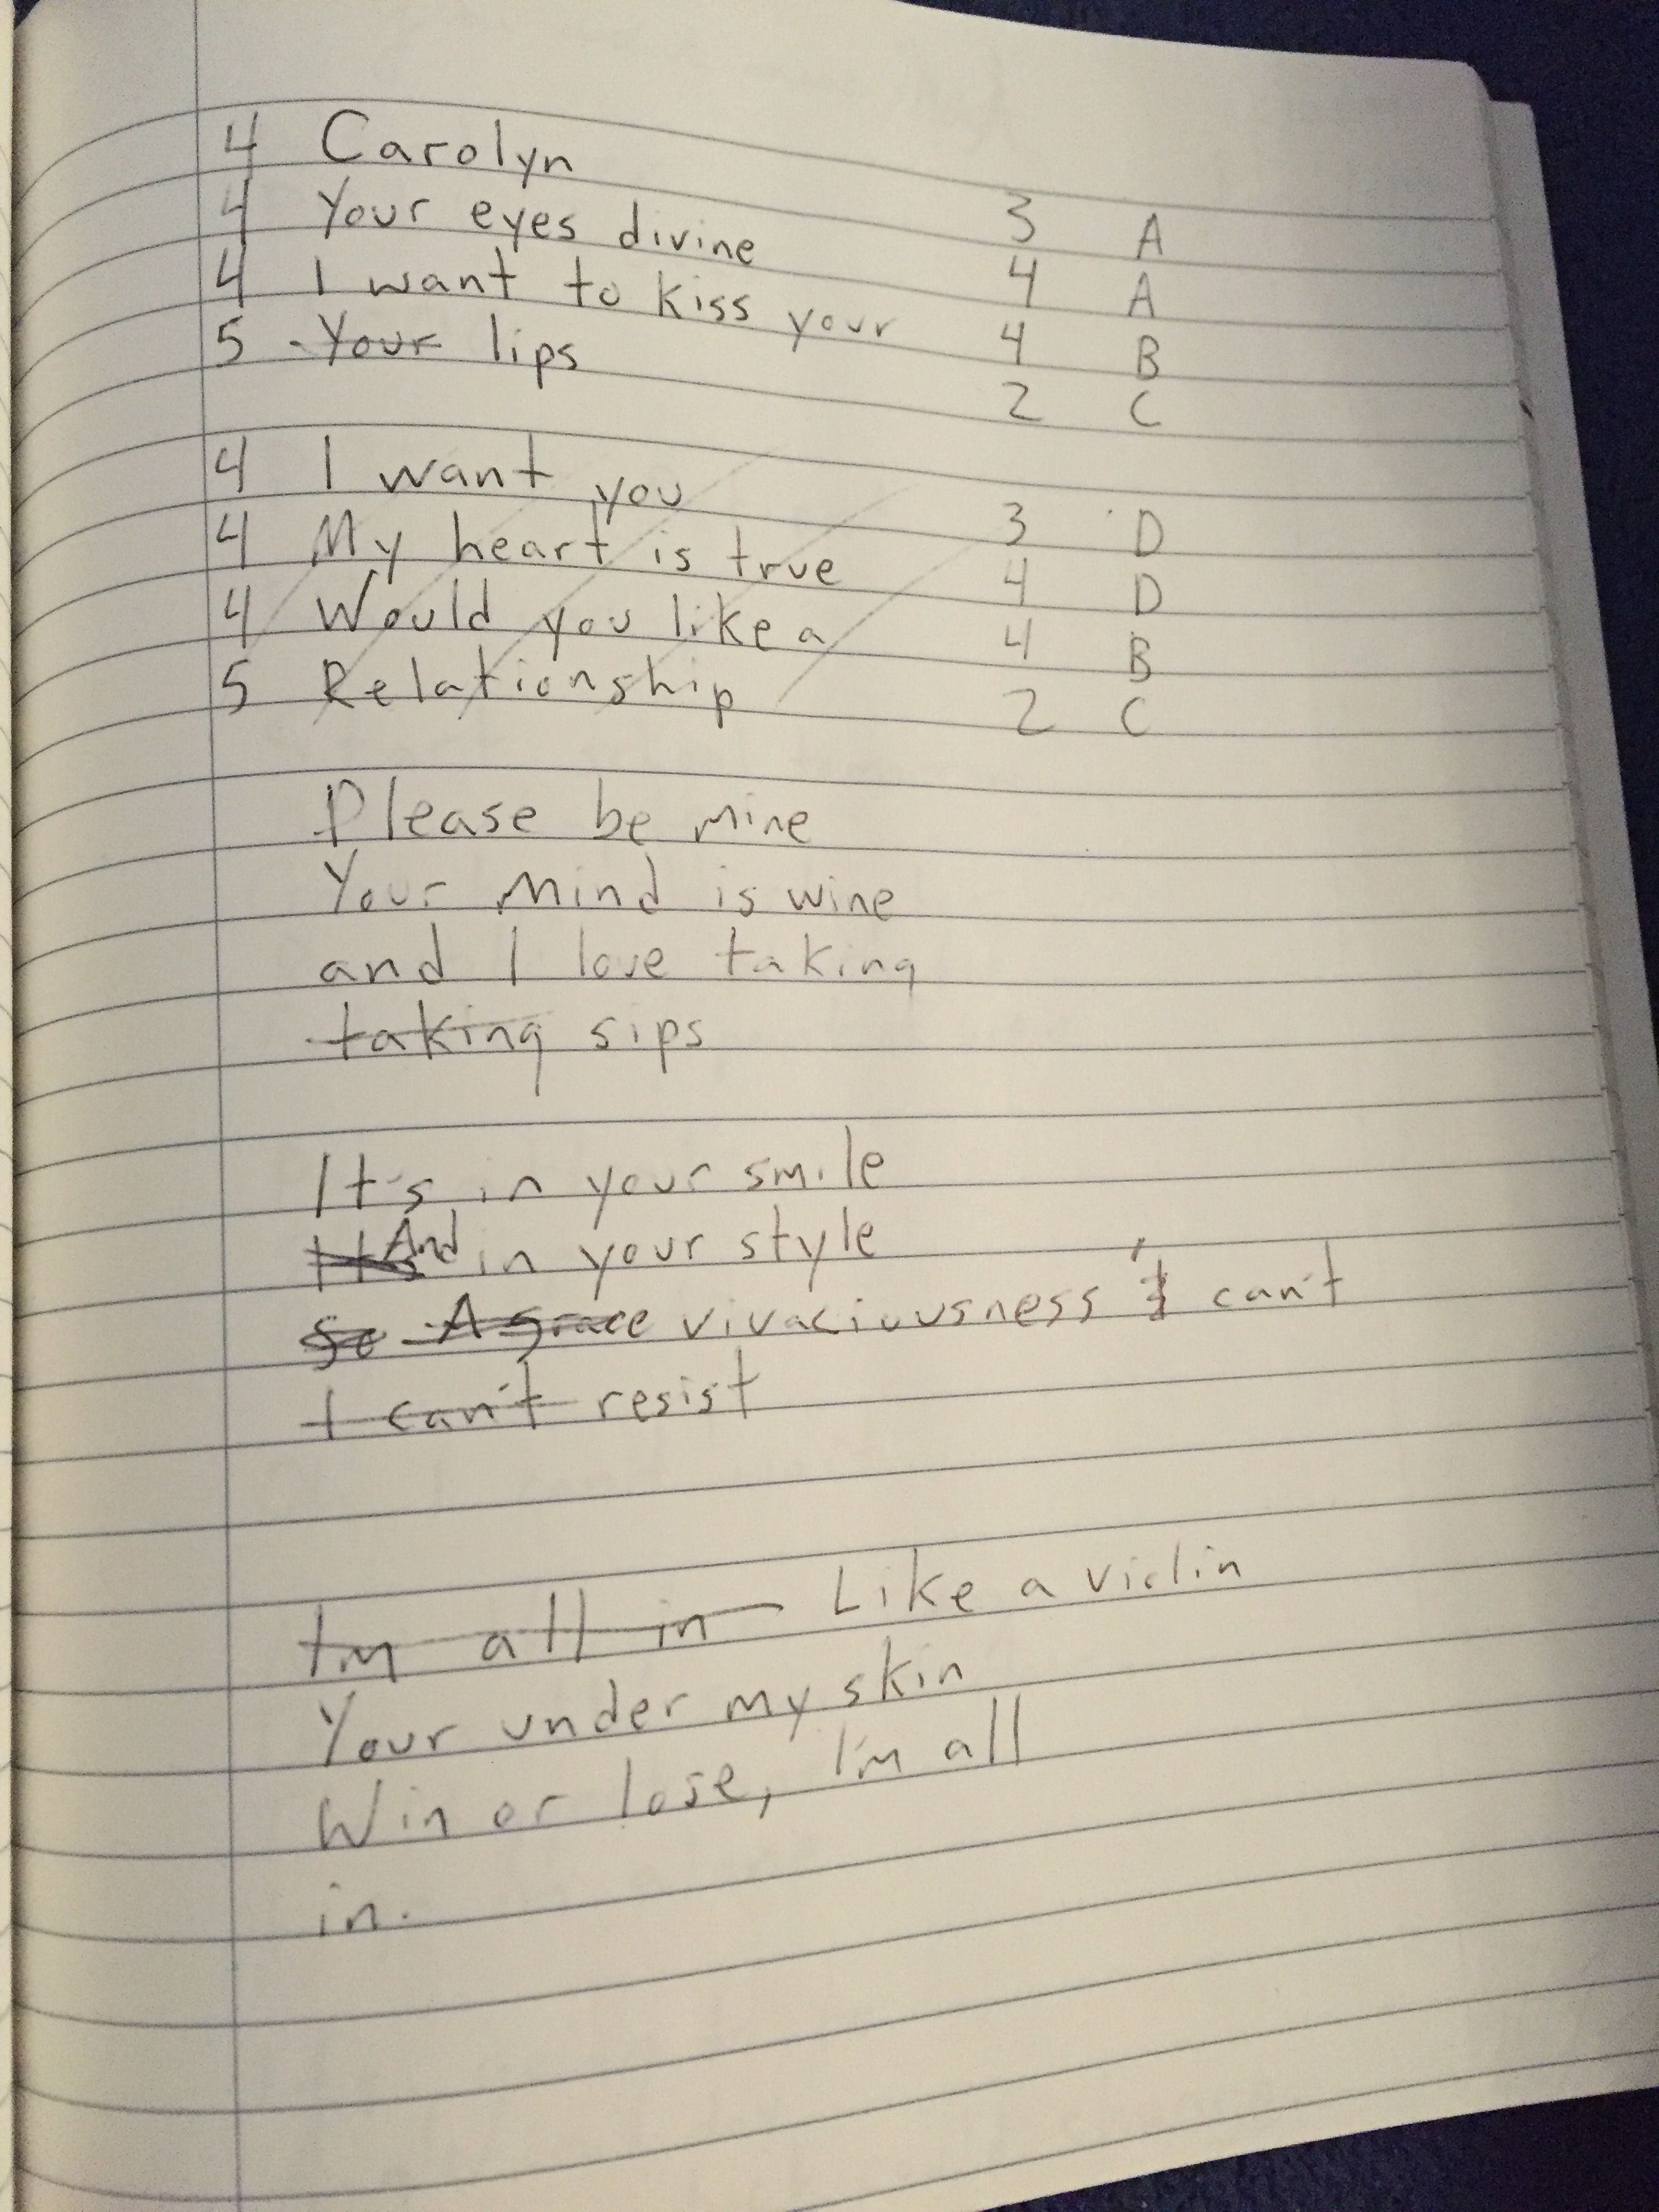 4 Carolyn
4 Your eyes divine 3 A
4 I want to kiss your 4 A
5 Your lips 4 B
2 C
4 I want you
4 My heart is true 3 D
4 Would you like a 4 D
5 Relationship 4 B
2 C
Please be mine
Your mind is wine
and I love taking
taking sips
It's in your smile
It's And in your style
So A grace vivaciousness I can't
I can't resist
I'm all in Like a violin
Your under my skin
Win or lose, I'm all
in.